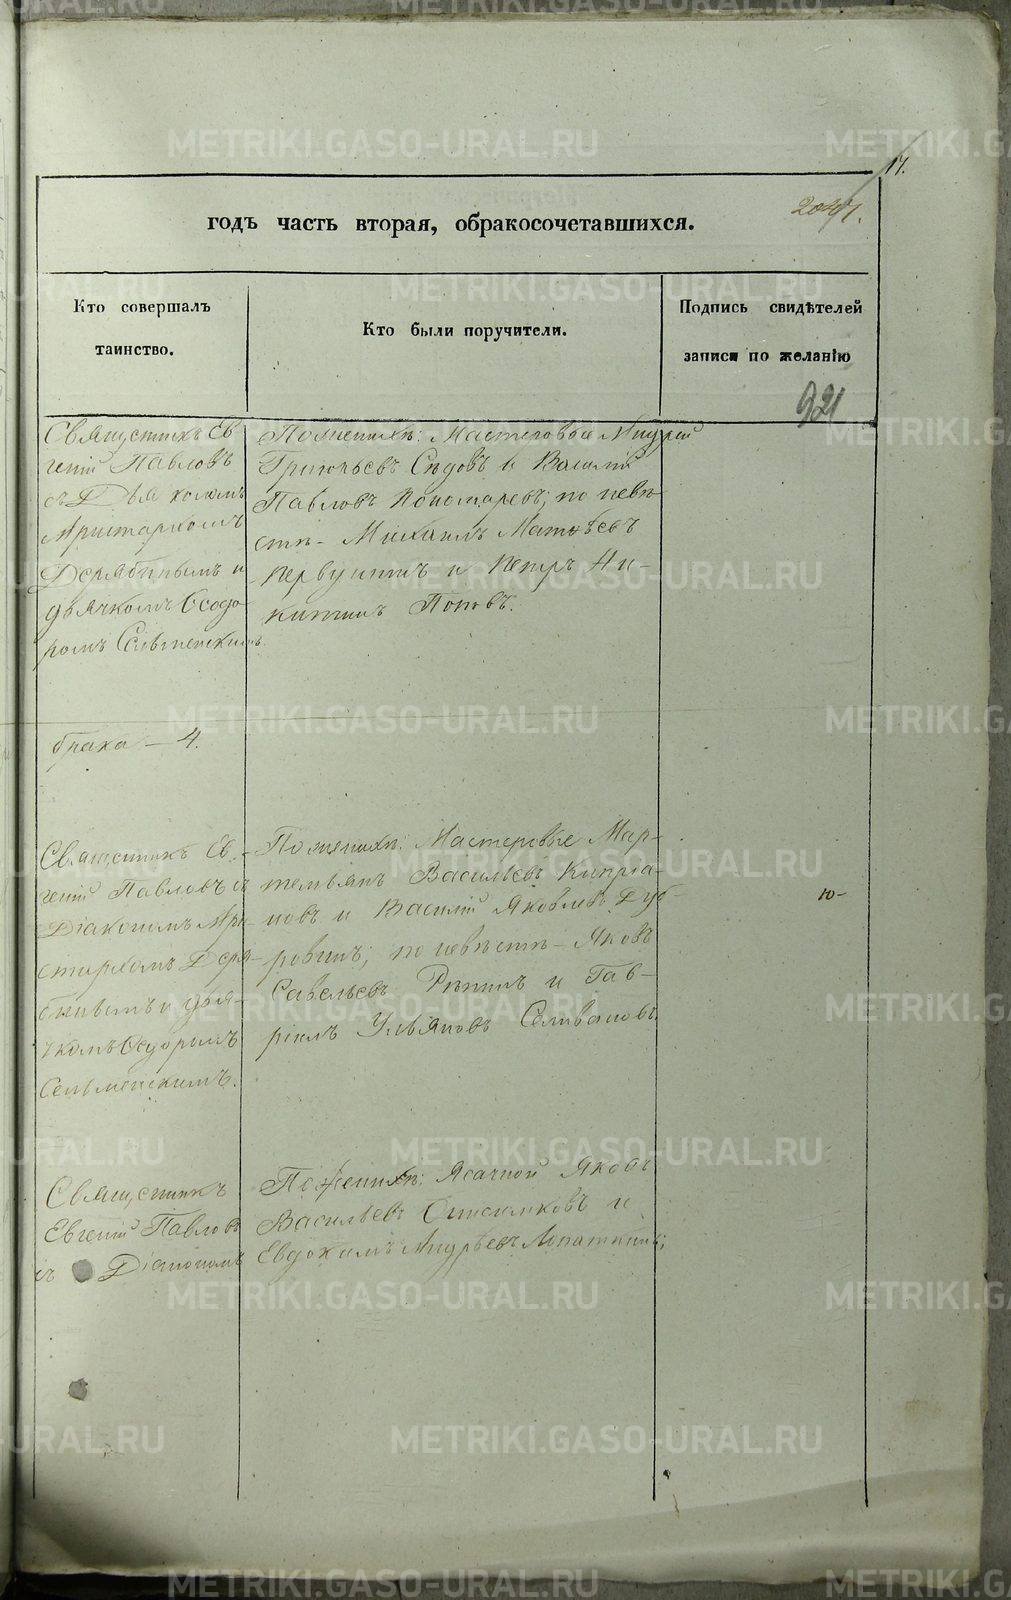 17.
204
годъ часть вторая, обракосочетавшихся.
Кто совершалъ
таинство.
Кто были поручители.
Подпись свидѣтелей
записи по желанію
921
Священникъ Ев
геній Павловъ
съ Діякономъ
Аристархомъ
Дерябинымъ и
дьячкомъ Ѳеодо
ромъ Сельменскимъ
По женихѣ: Мастеровые Андрей
Григорьевъ Сѣдовъ и Василій
Павловъ Пономаревъ; по невѣ
стѣ - Михаилъ Матвѣевъ
Первушинъ и Петръ Ни-
китинъ Поповъ.
брака - 4.
Священникъ Ев-
геній Павловъ съ
Діакономъ Ари-
стархомъ Деря-
бинымъ и дья-
чкомъ Ѳеодоромъ
Сельменскимъ.
По женихѣ: Мастеровые Мар-
темьянъ Васильевъ Кипрія-
новъ и Василій Яковлевъ Дуб-
ровинъ; по невѣстѣ - Яковъ
Савельевъ Рѣпинъ и Гав-
ріилъ Ульяновъ Селивановъ.
ю-
Священникъ
Евгеній Павловъ
съ Діакономъ
По женихѣ: Ясачной Яковъ
Васильевъ и
Евдокимъ Андрѣевъ Лопаткинъ;
METRIKI.GASO-URAL.RU